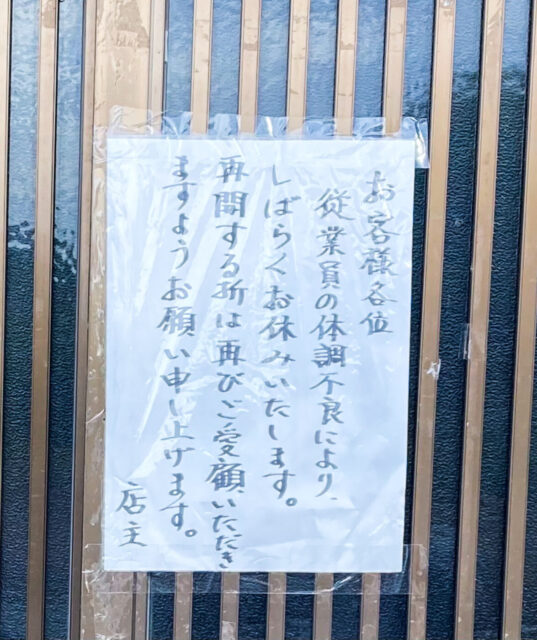 お客様各位
従業員の体調不良により、
しばらくお休みいたします。
再開する折は再びご愛顧いただき
ますようお願い申し上げます。
店主